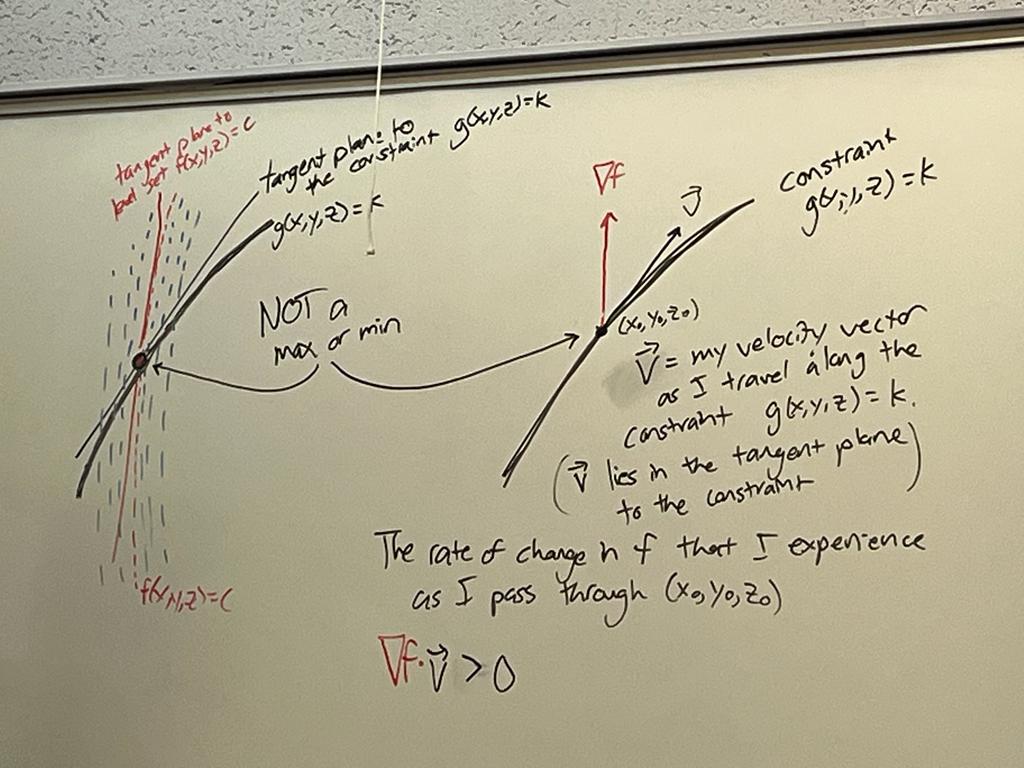 tangent plane to
level set f(x,y,z)=c
tangent plane to
the constraint g(x,y,z)=k
g(x,y,z)=k
NOT a
max or min
f(x,y,z)=c
∇f
v⃗
constraint
g(x,y,z)=k
(x₀,y₀,z₀)
v⃗ = my velocity vector
as I travel along the
constraint g(x,y,z)=k.
(v⃗ lies in the tangent plane
to the constraint)
The rate of change in f that I experience
as I pass through (x₀,y₀,z₀)
∇f·v⃗ > 0